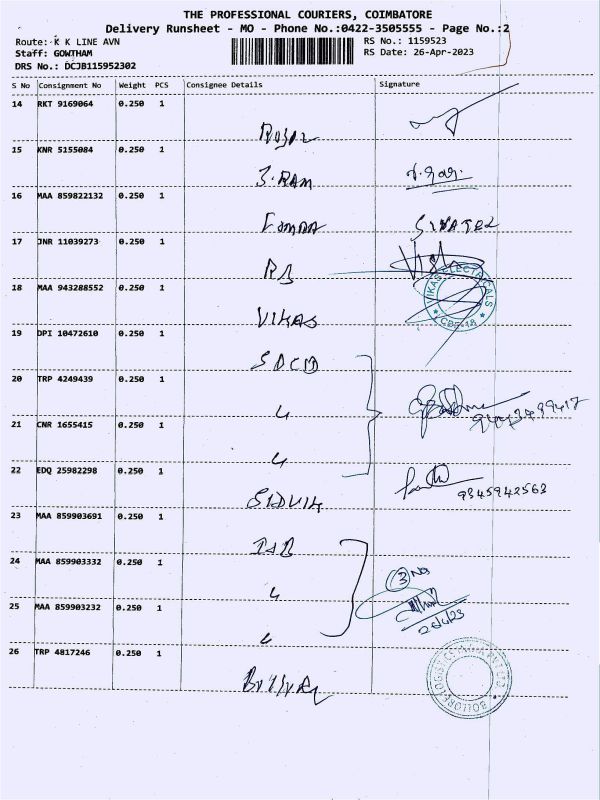 THE PROFESSIONAL COURIERS, COIMBATORE
Delivery Runsheet - MO - Phone No.:0422-3505555 - Page No.:2
Route: K K LINE AVN
RS No.: 1159523
Staff: GOWTHAM
RS Date: 26-Apr-2023
DRS No.: DCJB115952302
S No Consignment No Weight PCS Consignee Details Signature
14 RKT 9169064 0.250 1
15 KNR 5155084 0.250 1
S.RAM
16 MAA 859822132 0.250 1
17 JNR 11039273 0.250 1
18 MAA 943288552 0.250 1
VIKAS
VIKAS ELECTRICALS
19 DPI 10472610 0.250 1
20 TRP 4249439 0.250 1
21 CNR 1655415 0.250 1
22 EDQ 25982298 0.250 1
9345942563
23 MAA 859903691 0.250 1
24 MAA 859903332 0.250 1
3 Nos
25 MAA 859903232 0.250 1
26/4/23
26 TRP 4817246 0.250 1
BOLLORE LOGISTICS INDIA PVT LTD